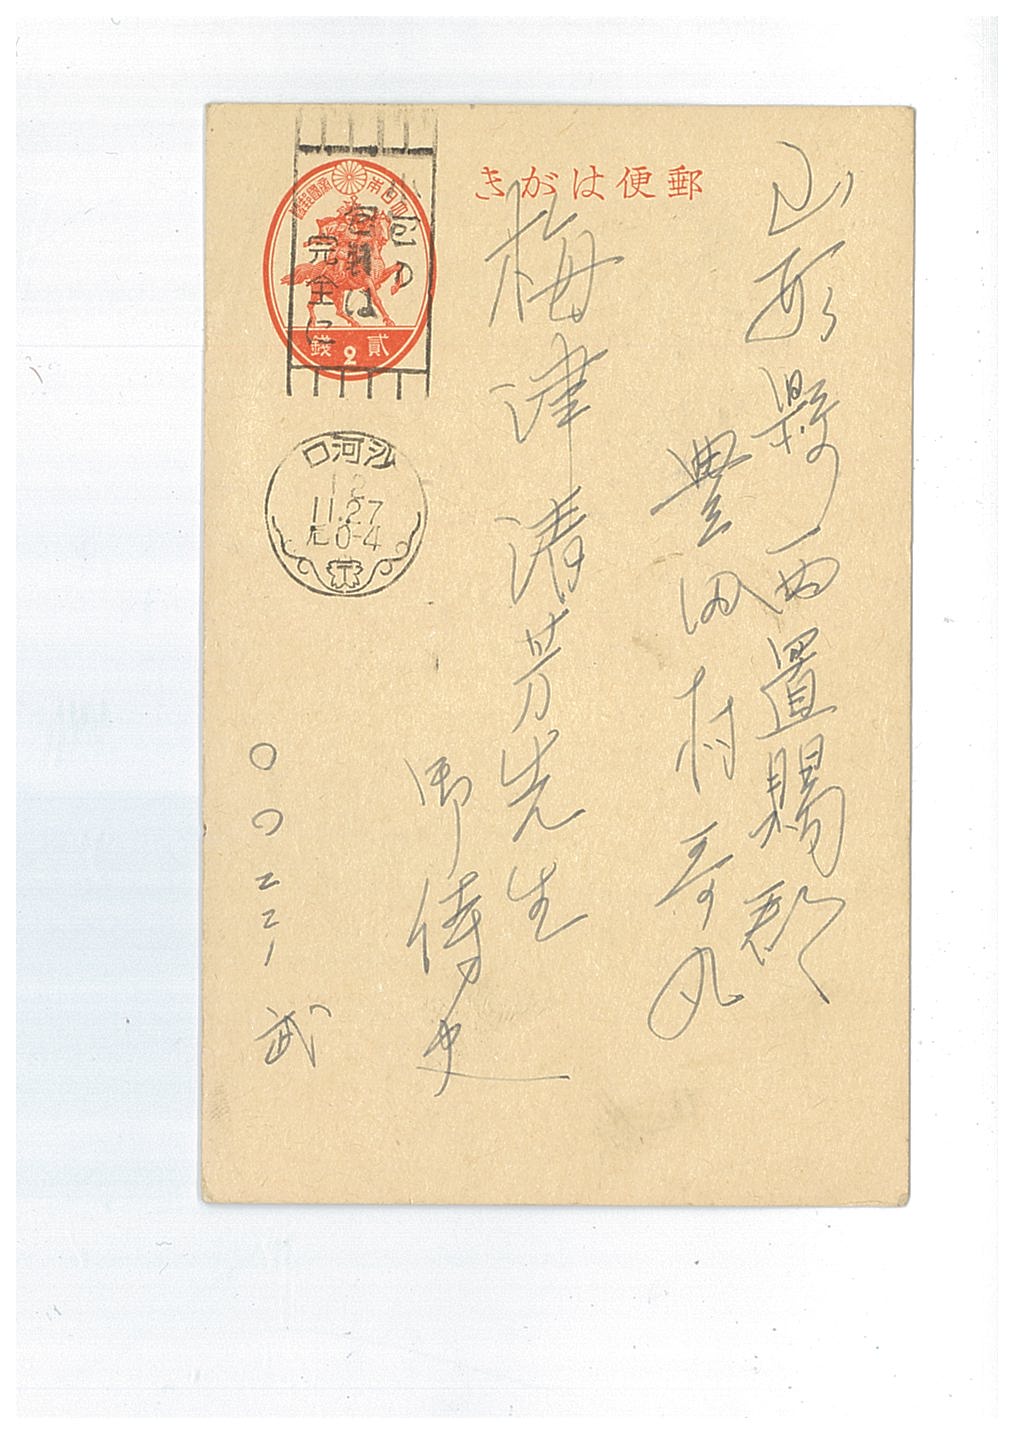 郵便はがき
山形縣西置賜郡
豊田村
梅津清芳先生
御侍史
武
大日本帝國郵便
貳錢
2
包装は
完全に
沙河口
12
11.27
后0-4